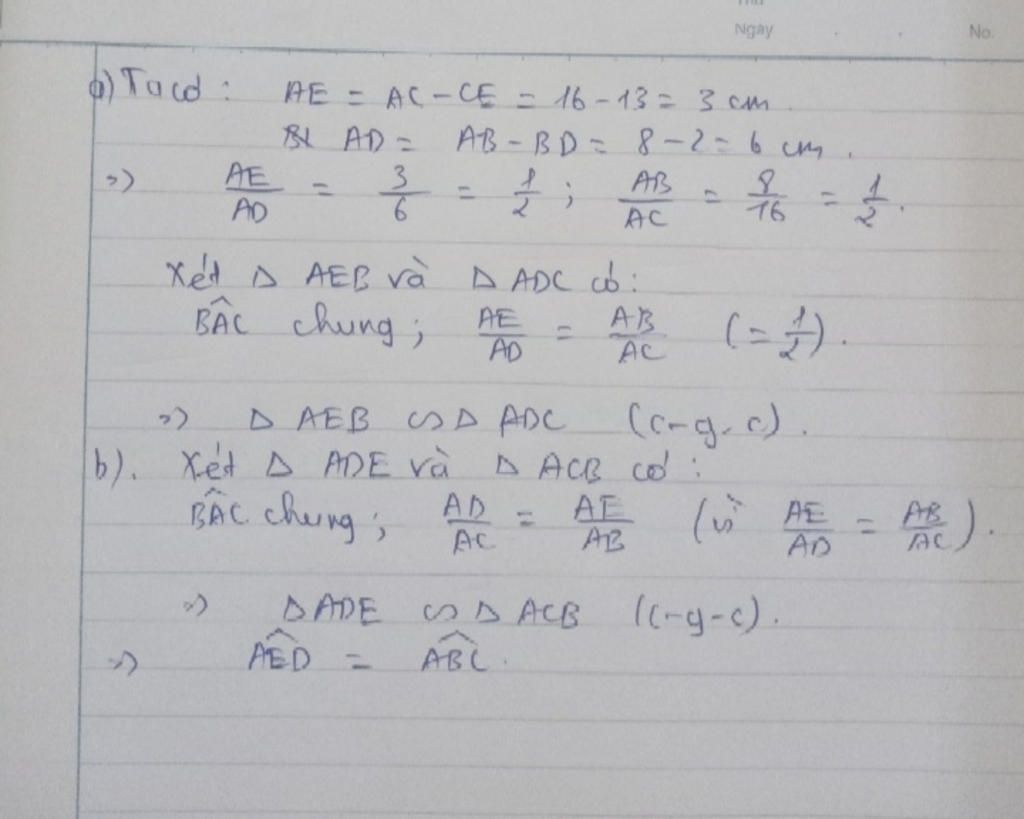 Ngày No.
a) Ta có : AE = AC - CE = 16 - 13 = 3 cm.
AD = AB - BD = 8 - 2 = 6 cm.
=> AE/AD = 3/6 = 1/2 ; AB/AC = 8/16 = 1/2.
Xét Δ AEB và Δ ADC có:
B̂AC chung ; AE/AD = AB/AC (= 1/2).
=> Δ AEB ∽ Δ ADC (c-g-c).
b). Xét Δ ADE và Δ ACB có :
B̂AC chung ; AD/AC = AE/AB (vì AE/AD = AB/AC).
=> Δ ADE ∽ Δ ACB (c-g-c).
=> ÂED = ÂBC.